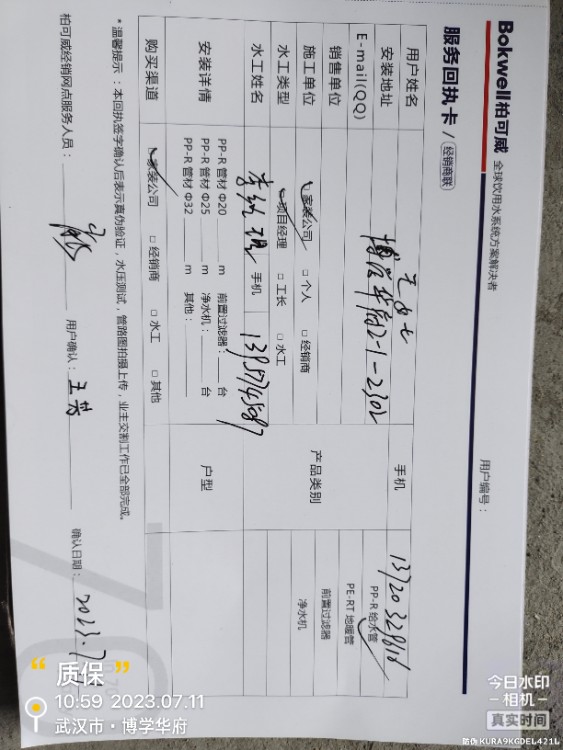 Bokwell柏可威 全球饮用水系统方案解决者
服务回执卡 / 经销商联
用户编号：
用户姓名
手机
安装地址 博学华府2-1-2302
E-mail(QQ)
销售单位
施工单位 家装公司 □ 个人 □ 经销商
水工类型 项目经理 □ 工长 □ 水工
产品类别 PP-R 给水管
PE-RT 地暖管
前置过滤器
净水机
水工姓名 手机
安装详情 PP-R 管材 Φ20 m 前置过滤器： 台
PP-R 管材 Φ25 m 净水机： 台
PP-R 管材 Φ32 m 其他：
户型
购买渠道 家装公司 □ 经销商 □ 水工 □ 其他
*温馨提示：本回执签字确认后表示真伪验证，水压测试，管路图拍摄上传，业主交割工作已全部完成。
柏可威经销网点服务人员： 用户确认： 确认日期： 2023.7
“质保”
10:59 2023.07.11
武汉市·博学华府
今日水印
相机
真实时间
防伪 KURA9KGDEL421L